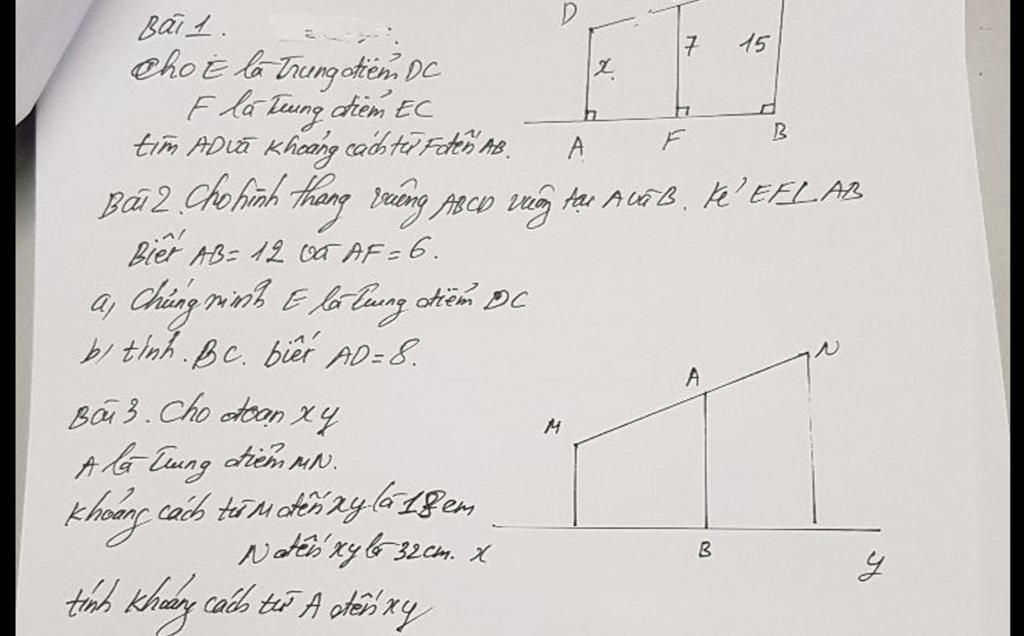 Bài 1.
Cho E là Trung điểm DC
F là Trung điểm EC
tìm AD và khoảng cách từ F đến AB.
D
x
7
15
A
F
B
Bài 2. Cho hình thang vuông ABCD vuông tại A và B. Kẻ EF⊥AB
Biết AB = 12 và AF = 6.
a, Chứng minh E là Trung điểm DC
b, tính BC. biết AD = 8.
Bài 3. Cho đoạn xy
A là Trung điểm MN.
Khoảng cách từ M đến xy là 18cm
N đến xy là 32cm.
tính khoảng cách từ A đến xy
M
A
N
x
B
y